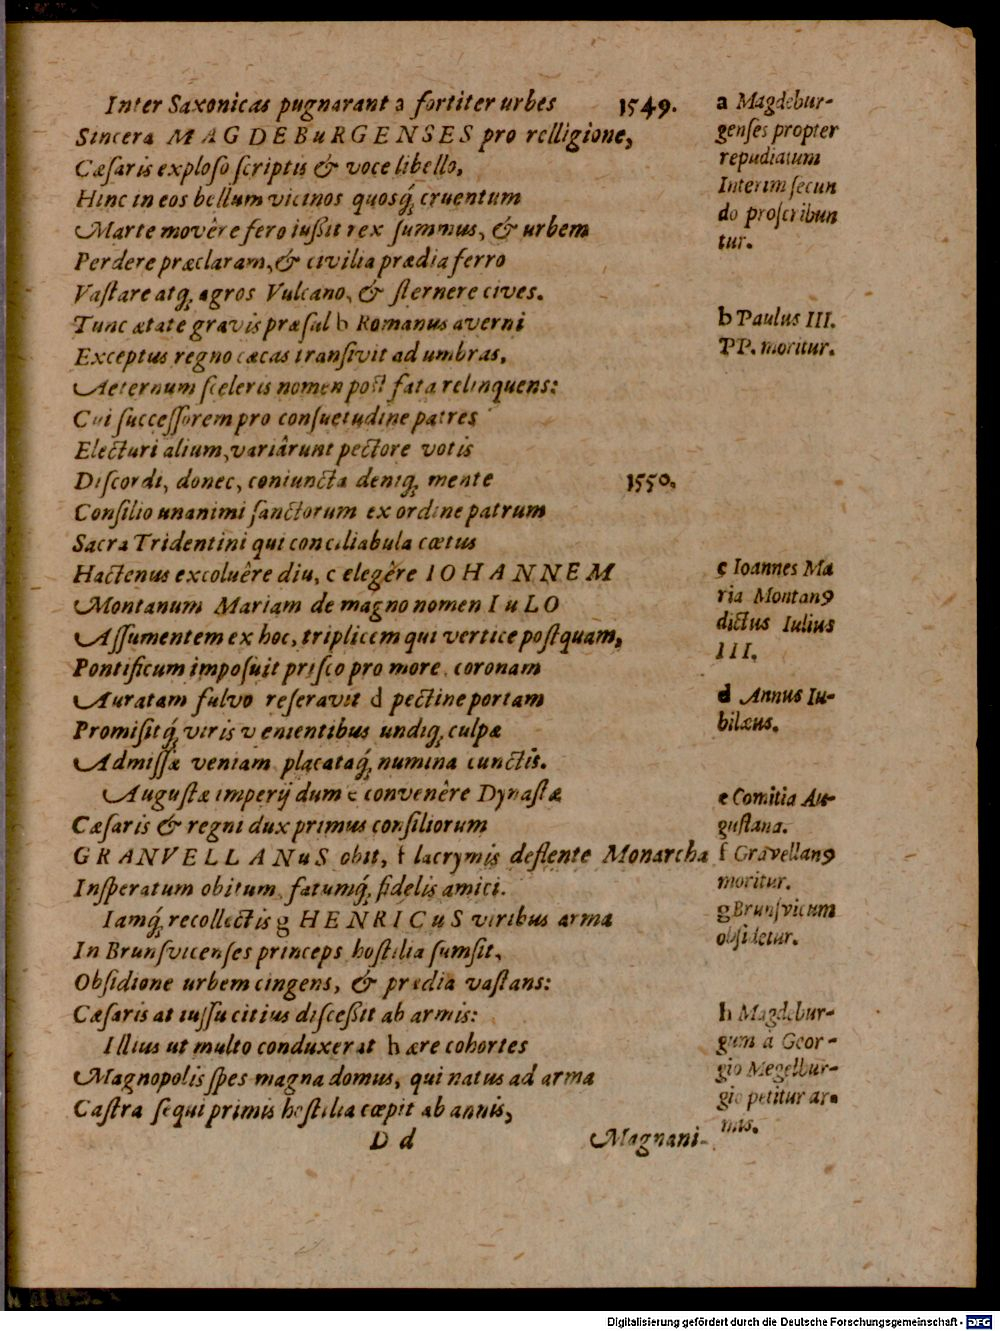 Inter Saxonicas pugnarant a fortiter urbes 1549.
Sincera MAGDEBuRGENSES pro relligione,
Cæſaris exploſo ſcriptis & voce libello,
Hinc in eos bellum vicinos quosq́; cruentum
Marte movêre fero iußit rex ſummus, & urbem
Perdere præclaram, & civilia prædia ferro
Vaſtare atq; agros Vulcano, & ſternere cives.
Tunc ætate gravis præſul b Romanus averni
Exceptus regno cæcas tranſivit ad umbras,
Aeternum ſceleris nomen poſt fata relinquens:
Cui ſucceſſorem pro conſuetudine patres
Electuri alium, variârunt pectore votis
Diſcordi, donec, coniuncta deniq; mente 1550.
Conſilio unanimi ſanctorum ex ordine patrum
Sacra Tridentini qui conciliabula cœtus
Hactenus excoluêre diu, c elegêre IOHANNEM
Montanum Mariam de magno nomen IuLO
Aſſumentem ex hoc, triplicem qui vertice poſtquam,
Pontificum impoſuit priſco pro more, coronam
Auratam fulvo reſeravit d pectine portam
Promiſitq́; viris venientibus undiq; culpæ
Admiſſæ veniam placataq́; numina cunctis.
Auguſtæ imperij dum e convenêre Dynaſtæ
Cæſaris & regni dux primus conſiliorum
GRANVELLANuS obit, f lacrymis deflente Monarcha
Inſperatum obitum, fatumq́; fidelis amici.
Iamq́; recollectis g HENRICuS viribus arma
In Brunſvicenſes princeps hoſtilia ſumſit,
Obſidione urbem cingens, & prædia vaſtans:
Cæſaris at iuſſu citius diſceßit ab armis:
Illius ut multo conduxerat h ære cohortes
Magnopolis ſpes magna domus, qui natus ad arma
Caſtra ſequi primis hoſtilia cœpit ab annis,
D d Magnani-
a Magdebur-
genſes propter
repudiatum
Interim ſecun
do proſcribun
tur.
b Paulus III.
PP. moritur.
c Ioannes Ma
ria Montanꝰ
dictus Iulius
III.
d Annus Iu-
bilæus.
e Comitia Au-
guſtana.
f Gravellanꝰ
moritur.
g Brunſvicum
obſidetur.
h Magdebur-
gum à Geor-
gio Megelbur-
gio petitur ar-
mis.
Digitalisierung gefördert durch die Deutsche Forschungsgemeinschaft - DFG